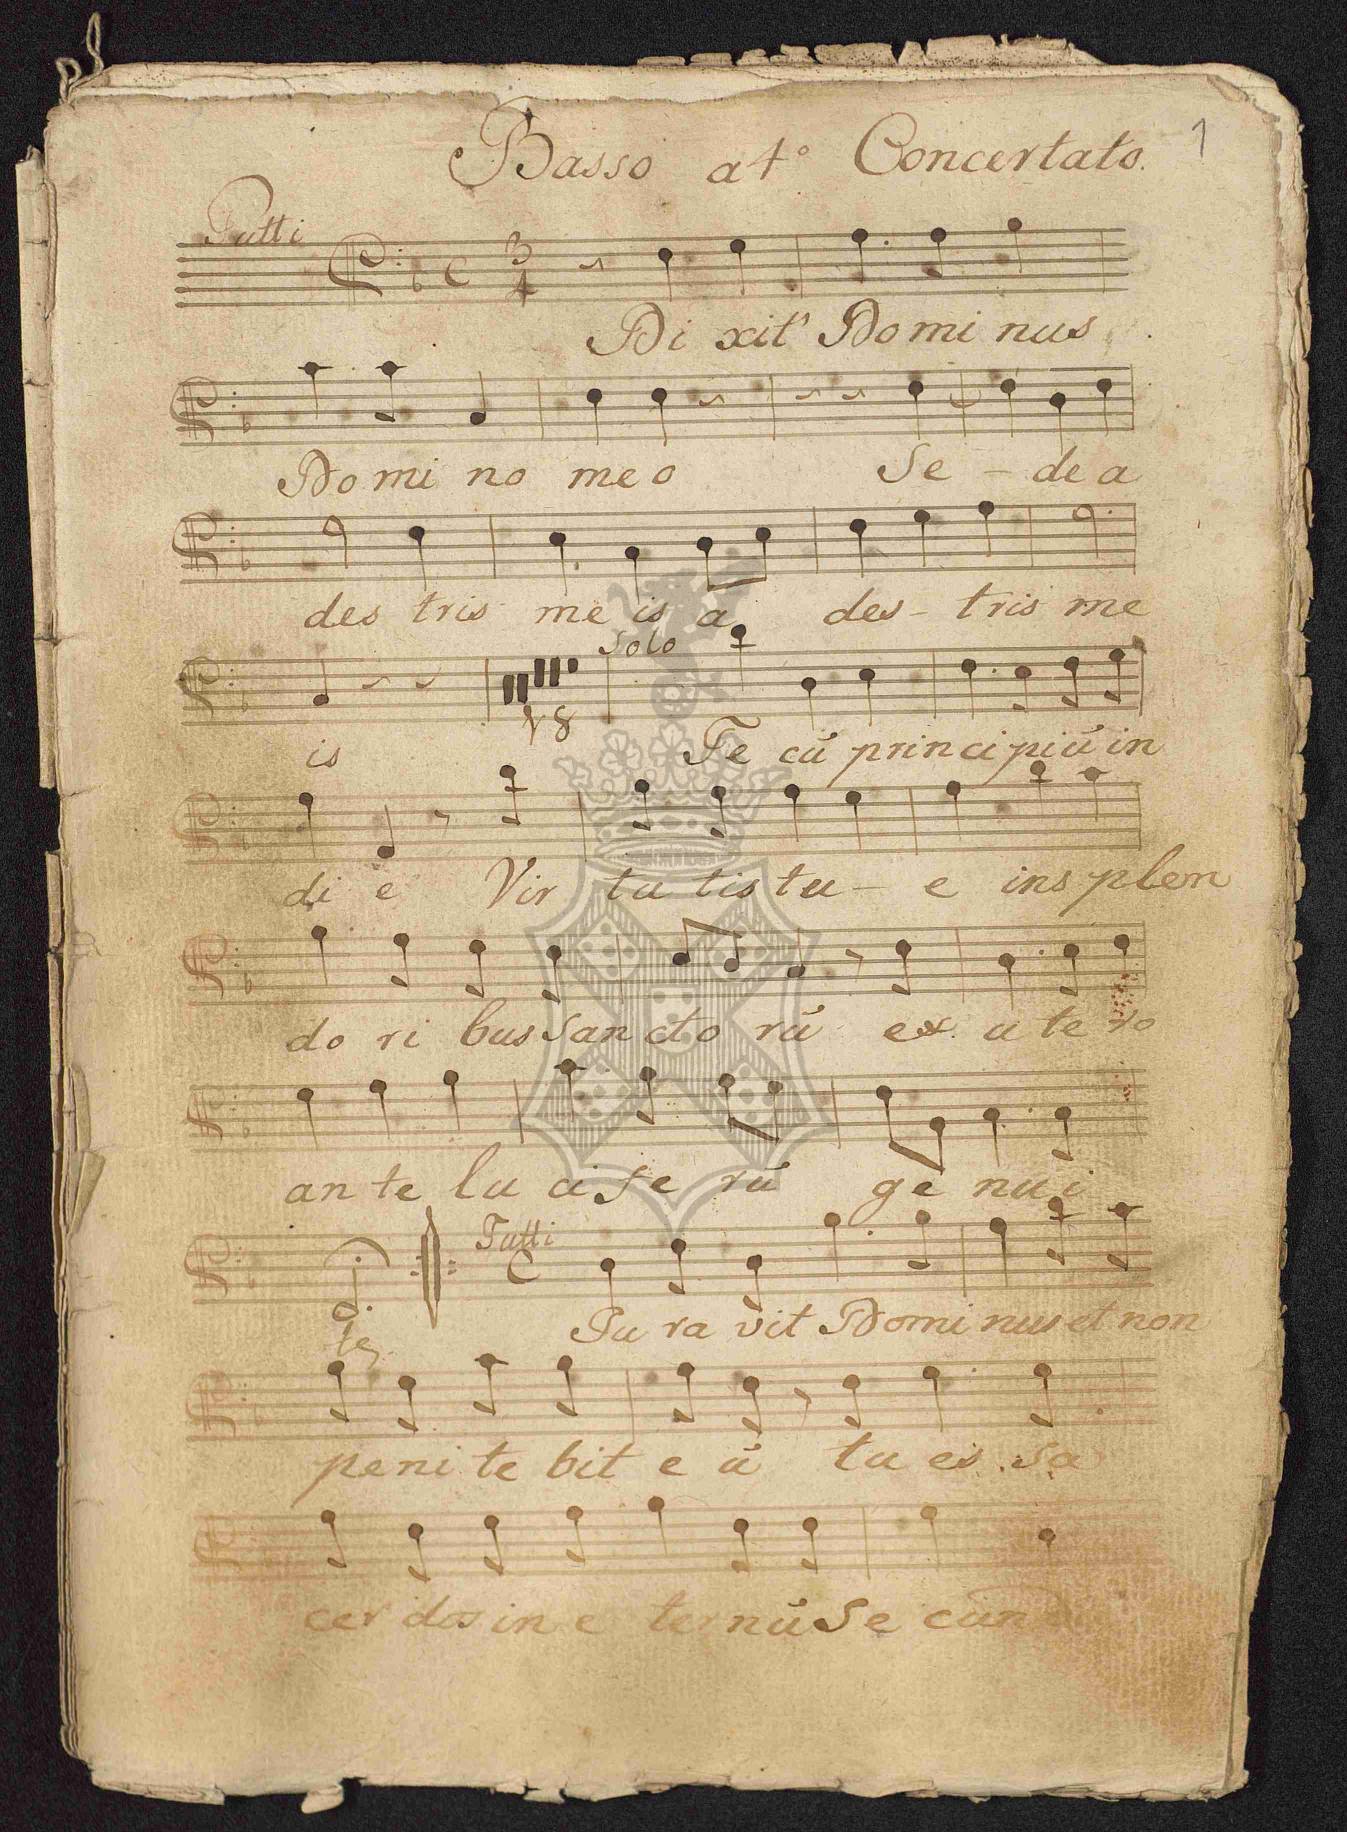 Basso a 4º Concertato. 1
Tutti
C 3/4
Di xit Do mi nus
Do mi no me o Se - de a
des tris me is a des - tris me
Solo
18
is Te cũ prin ci piũ in
di e Vir tu tis tu - e in splen
do ri bus San cto rũ ex u te ro
an te lu ci fe rũ ge nu i
Tutti
te Ju ra vit Do mi nus et non
pe ni te bit e ũ tu es sa
cer dos in e ter nũ Se cun